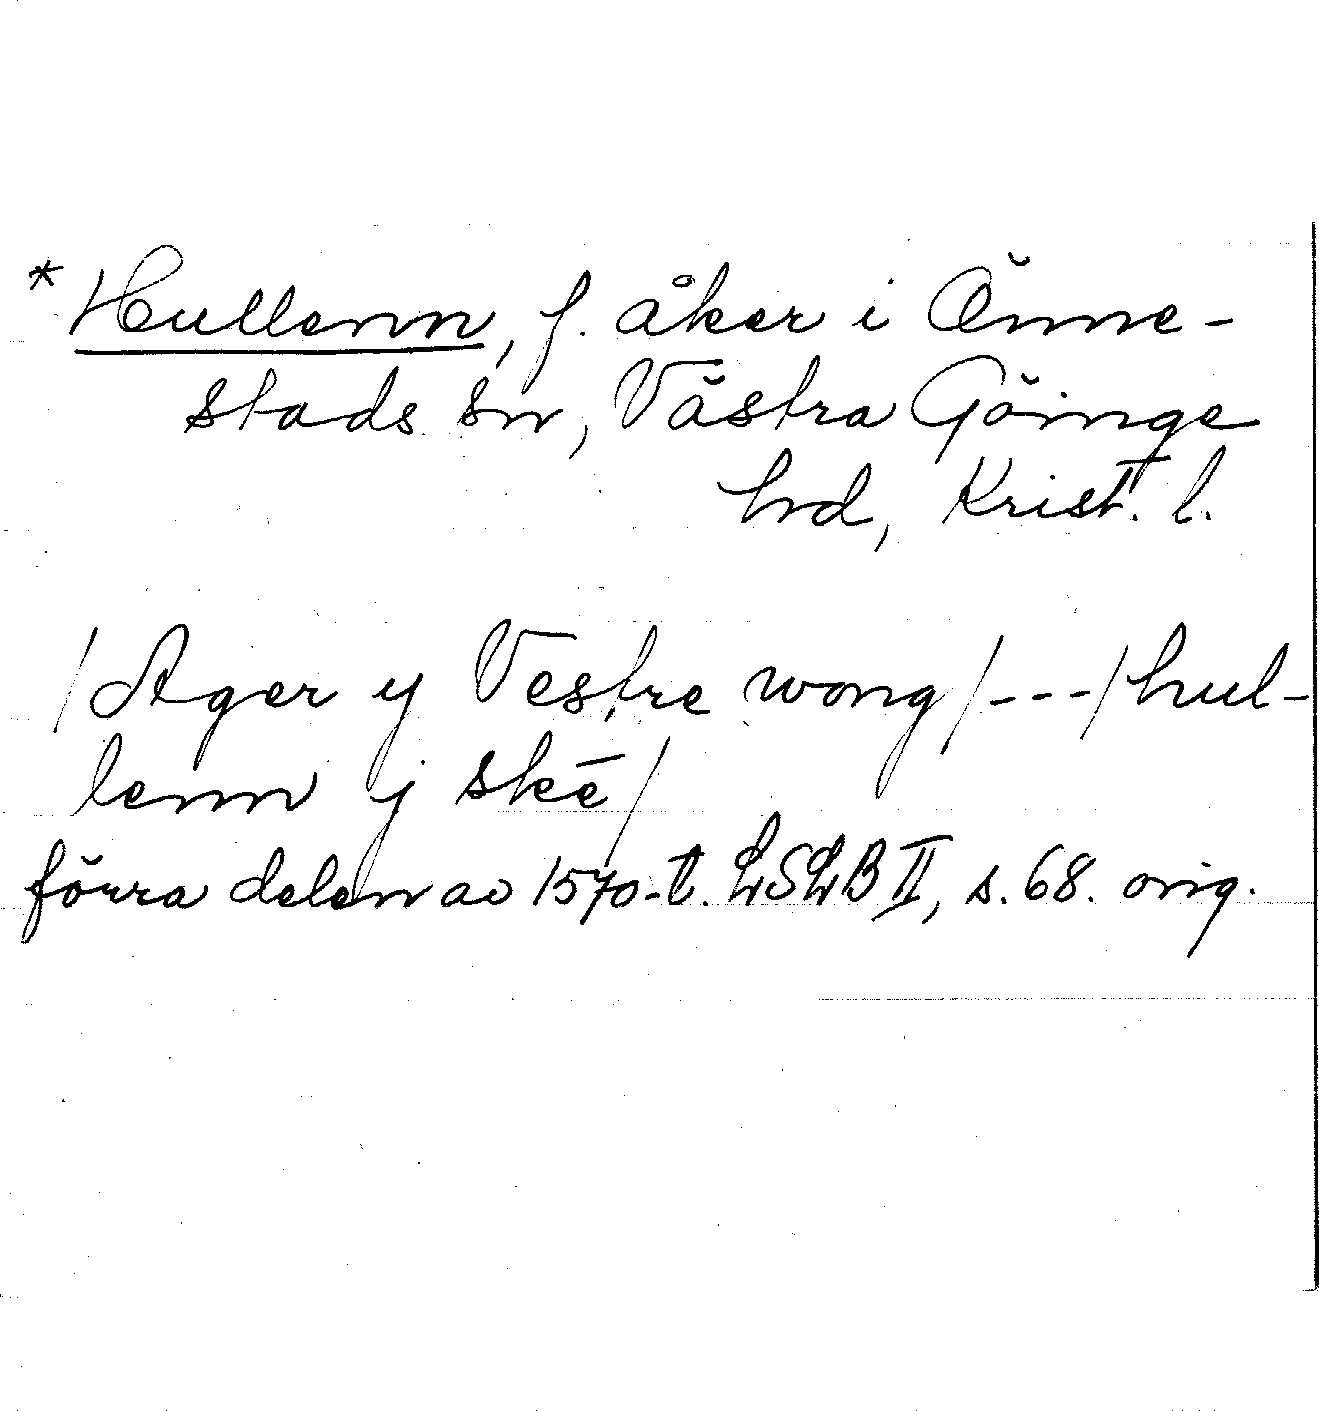 *Hullenn, f. åker i Önne-
stads sn, Västra Göinge
hrd, Krist. l.
/Ager y Vestre wong/---/hul-
lenn y skē/
förra delen av 1570-t. LSLB II, s. 68. orig.